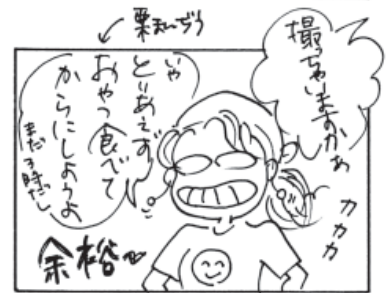 撮っちゃいますかぁ
カカカ
栗まんぢう
いや
とりあえず
おやつ食べて
からにしようよ
まだ3時だし
余裕〜